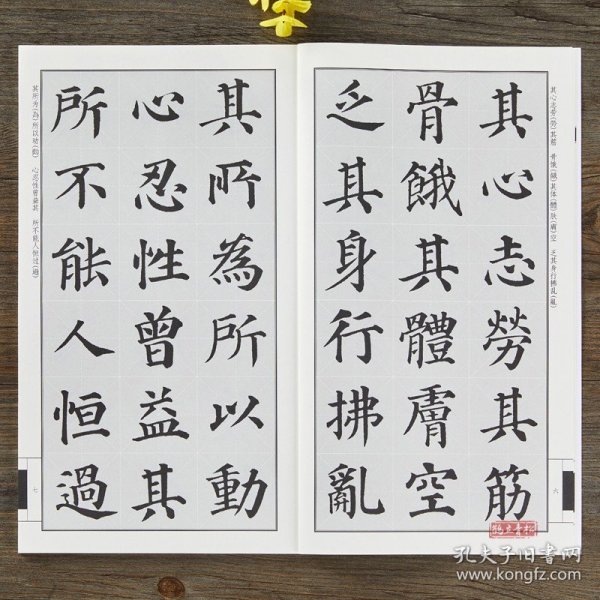 其心志勞其筋
骨餓其體膚空
乏其身行拂亂
其所為所以動
心忍性曾益其
所不能人恒過
其心志劳(勞)其筋 骨饿(餓)其体(體)肤(膚)空 乏其身行拂乱(亂)
其所为(為)所以动(動) 心忍性曾益其 所不能人恒过(過)
六
七
孔夫子旧书网
www.kongfz.com